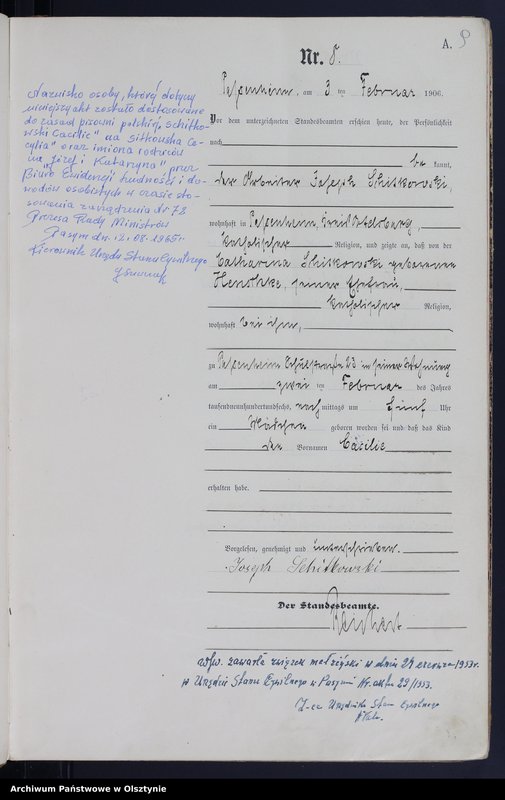 A. 9
Nr. 8.
Passenheim, am 3 ten Februar 1906.
Vor dem unterzeichneten Standesbeamten erschien heute, der Persönlichkeit
nach
be kannt,
der Arbeiter Joseph Schitkowski,
wohnhaft in Passenheim, Kreis Ortelsburg,
katholischer Religion, und zeigte an, daß von der
Catharina Schitkowski geborenen
seiner Ehefrau,
katholischer Religion,
wohnhaft bei ihm,
zu Passenheim Schulstraße 23 in seiner Wohnung
am zwei ten Februar des Jahres
tausendneunhundertundsechs, nach mittags um fünf Uhr
ein Mädchen geboren worden sei und daß das Kind
den Vornamen Cäcilie
erhalten habe.
Vorgelesen, genehmigt und unterschrieben.
Joseph Schitkowski
Der Standesbeamte.
Nazwisko osoby, której dotyczy
niniejszy akt zostało dostosowane
do zasad pisowni polskiej z „Schitko-
wski Cacilie" na „Sitkowska Ce-
cylia" oraz imiona rodziców
na „Józef i Katarzyna" przez
Biuro Ewidencji Ludności i do-
wodów osobistych w czasie sto-
sowania zarządzenia Nr 72
Prezesa Rady Ministrów
Pasym dn. 12.08.1965r.
Kierownik Urzędu Stanu Cywilnego
Wyw. zawarła związek małżeński w dniu 24 czerwca 1933r.
w Urzędzie Stanu Cywilnego w Pasymiu Nr. aktu 29/1933.
Z-ca Urzędnika Stanu Cywilnego
Archiwum Państwowe w Olsztynie